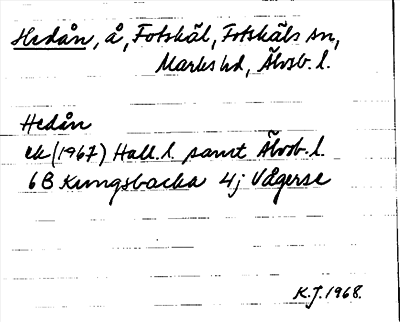 Hedån, å, Fotskäl, Fotskäls sn,
Marks hd, Älvsb. l.
Hedån
ek (1967) Hall. l. samt Älvsb. l.
6B Kungsbacka 4j Vägerse
K.J. 1968.